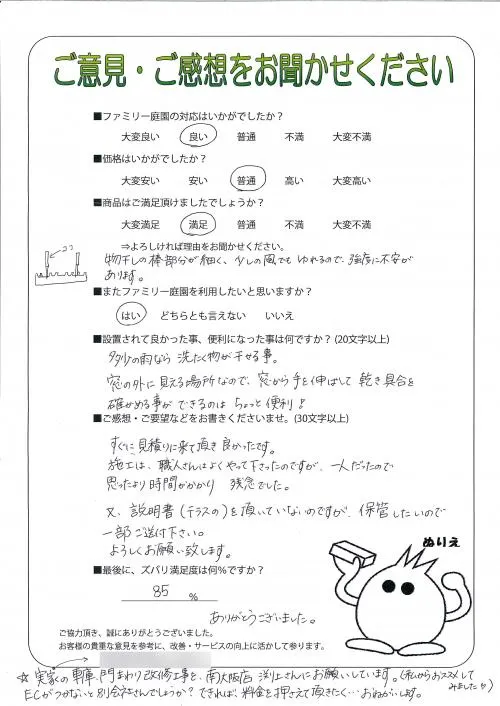 ご意見・ご感想をお聞かせください
■ファミリー庭園の対応はいかがでしたか？
大変良い 良い 普通 不満 大変不満
■価格はいかがでしたか？
大変安い 安い 普通 高い 大変高い
■商品はご満足頂けましたでしょうか？
大変満足 満足 普通 不満 大変不満
⇒よろしければ理由をお聞かせください。
ココ
物干しの棒部分が細く、少しの風でもゆれるので、強度に不安が
あります。
■またファミリー庭園を利用したいと思いますか？
はい どちらとも言えない いいえ
■設置されて良かった事、便利になった事は何ですか？(20文字以上)
多少の雨なら洗たく物が干せる事。
窓の外に見える場所なので、窓から手を伸ばして乾き具合を
確かめる事ができるのはちょっと便利！
■ご感想・ご要望などをお書きくださいませ。(30文字以上)
すぐに見積りに来て頂き良かったです。
施工は、職人さんはよくやって下さったのですが、一人だったので
思ったより時間がかかり 残念でした。
又、説明書(テラスの)を頂いていないのですが、保管したいので
一部ご送付下さい。
よろしくお願い致します。
ぬりえ
■最後に、ズバリ満足度は何％ですか？
85 %
ありがとうございました。
ご協力頂き、誠にありがとうございました。
お客様の貴重な意見を参考に、改善・サービスの向上に活かして参ります。
☆実家の車庫、門まわり改修工事を、南大阪店 渕上さんにお願いしています。(私からおススメしてみましたか)
ECがつかないと別会社さんでしょうか？できれば、料金を押さえて頂きたく…おねがいします。